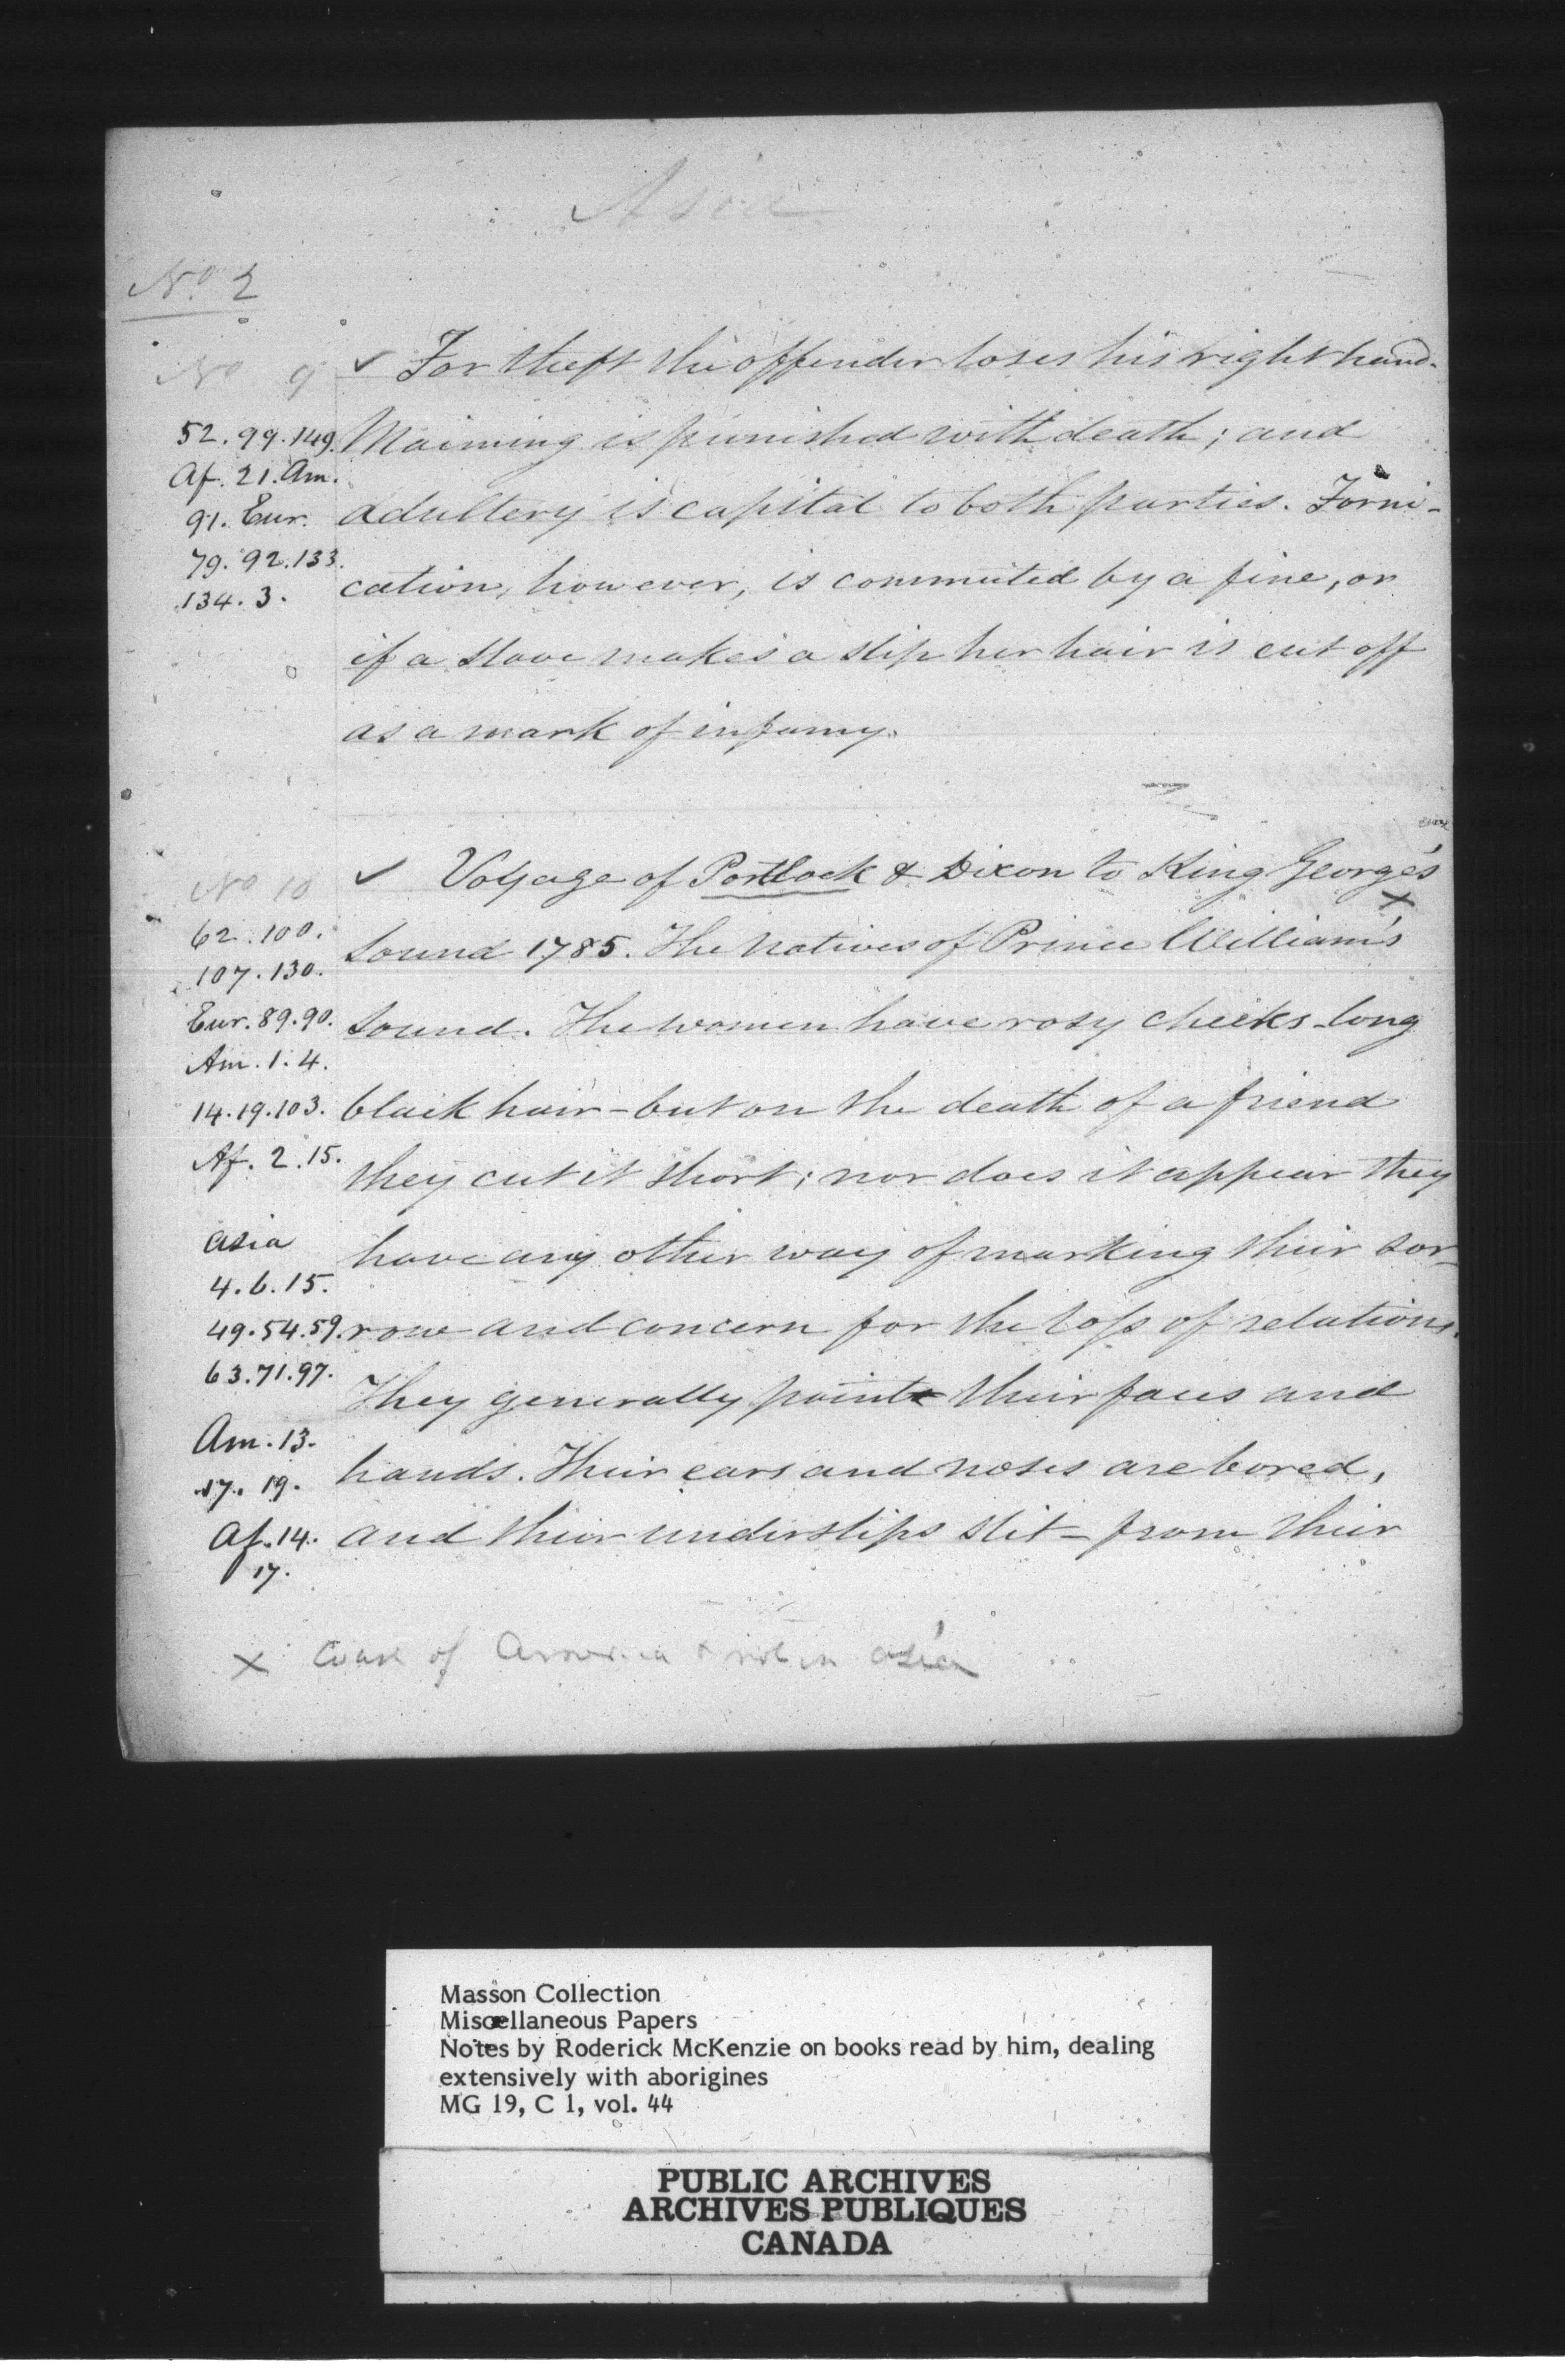 Asia
No. 2
No 9
✓ For theft the offender loses his right hand.
52. 99. 149.
Maiming is punished with death; and
Af. 21. Am.
91. Eur.
adultery is capital to both parties. Forni-
79. 92. 133.
134. 3.
cation, however, is commuted by a fine, or
if a slave makes a slip her hair is cut off
as a mark of infamy.
No 10
✓ Voyage of Portlock & Dixon to King George's
62. 100.
107. 130.
Sound 1785. The natives of Prince William's x
Eur. 89. 90.
Sound. The women have rosy cheeks - long
Am. 1. 4.
14. 19. 103.
black hair - but on the death of a friend
Af. 2. 15.
they cut it short; nor does it appear they
Asia
have any other way of marking their sor-
4. 6. 15.
49. 54. 59.
row and concern for the loss of relations.
63. 71. 97.
They generally paint their faces and
Am. 13.
17. 19.
hands. Their ears and noses are bored,
Af. 14.
17.
and their underslips slit - from their
x Coast of America & not in Asia
Masson Collection
Miscellaneous Papers
Notes by Roderick McKenzie on books read by him, dealing
extensively with aborigines
MG 19, C 1, vol. 44
PUBLIC ARCHIVES
ARCHIVES PUBLIQUES
CANADA